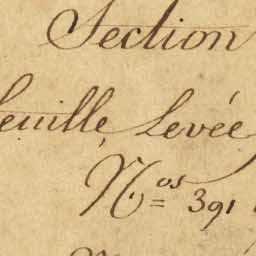 Section
euille, Levée
N.os 391